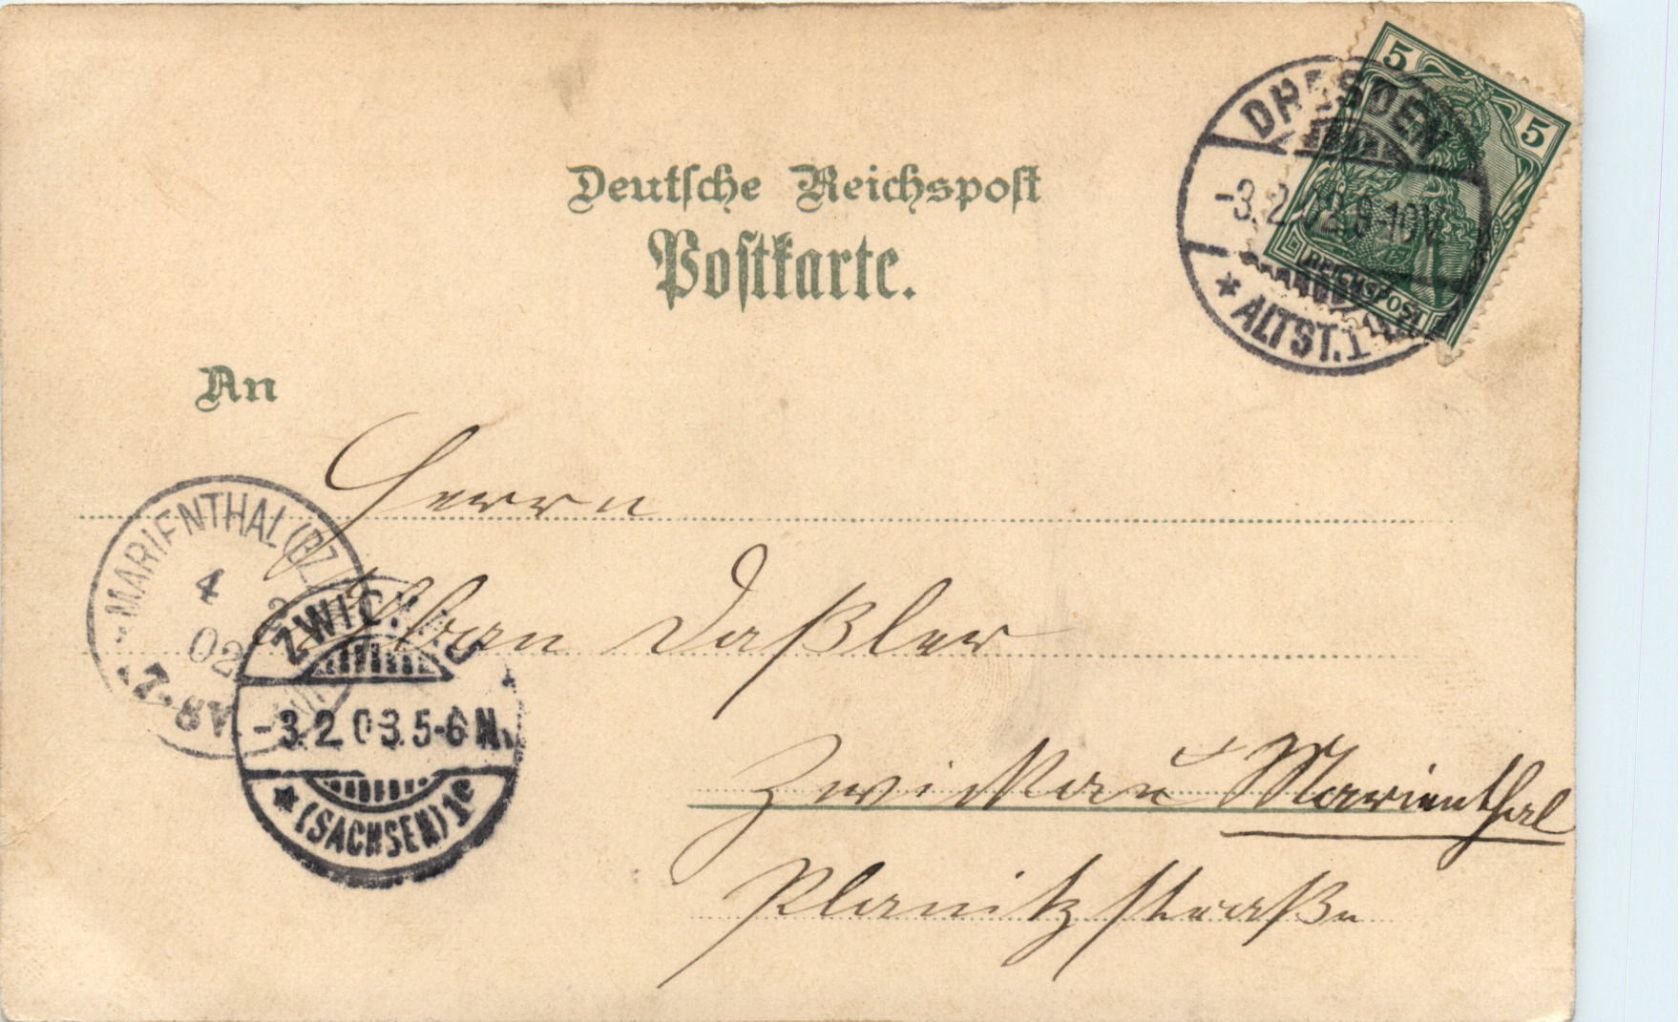 5 5
DRESDEN
-3.2.02.9-10V.
REICHSPOST
* ALTST.1
Deutsche Reichspost
Postkarte.
An
Herrn
MARIENTHAL (BZ.
4 2
02
7-8V.
Alban Daßler
ZWICKAU
-3.2.03.5-6N.
* (SACHSEN) 1c
Zwickau Marienthal
Planitzstraße